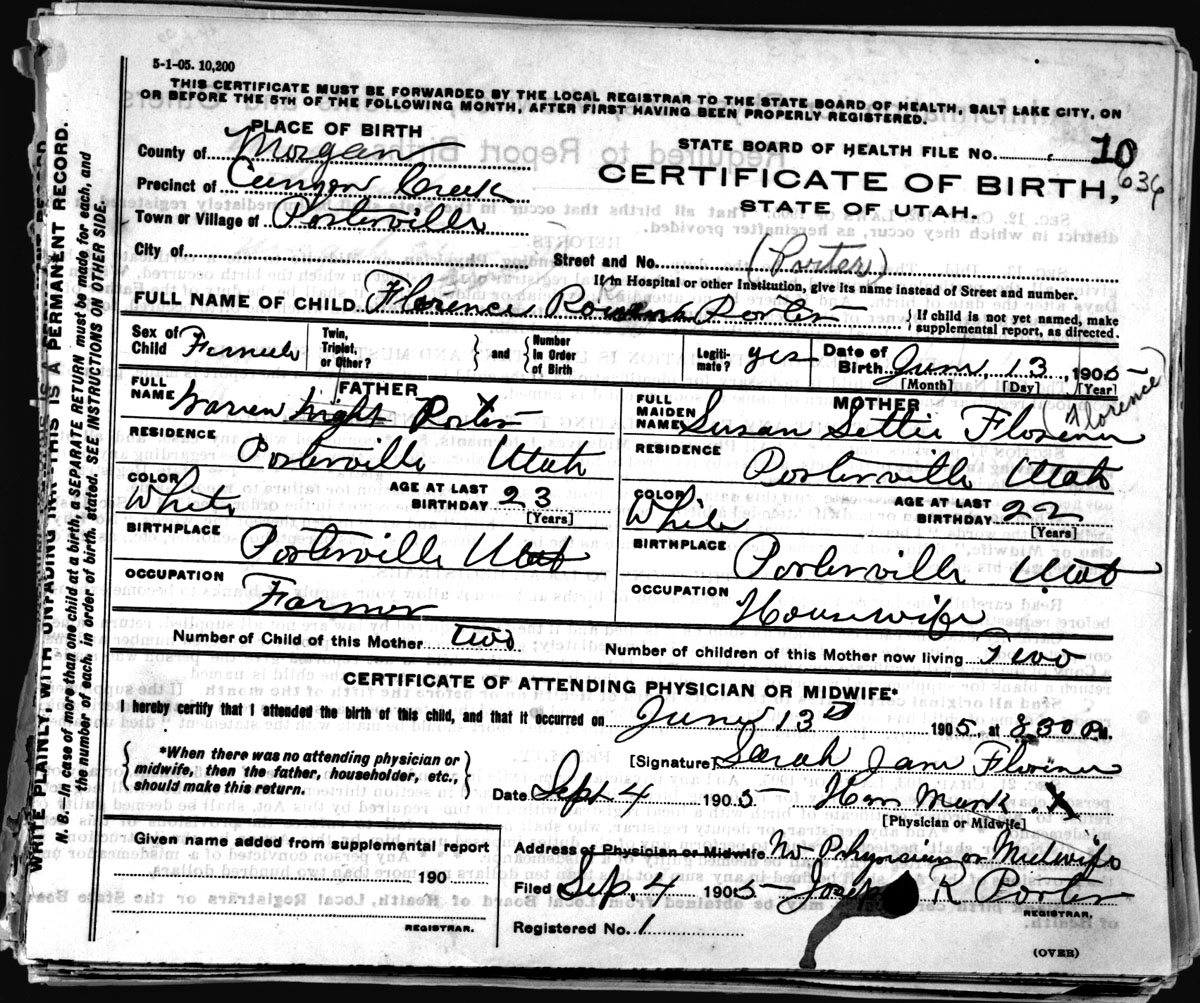 5-1-05. 10,200
THIS CERTIFICATE MUST BE FORWARDED BY THE LOCAL REGISTRAR TO THE STATE BOARD OF HEALTH, SALT LAKE CITY, ON
OR BEFORE THE 5TH OF THE FOLLOWING MONTH, AFTER FIRST HAVING BEEN PROPERLY REGISTERED.
PLACE OF BIRTH
STATE BOARD OF HEALTH FILE No. 10
636
County of Morgan
CERTIFICATE OF BIRTH,
Precinct of Canyon Creek
STATE OF UTAH.
Town or Village of Porterville
City of
Street and No. (Porter)
If in Hospital or other Institution, give its name instead of Street and number.
FULL NAME OF CHILD Florence Rowena Porter { If child is not yet named, make supplemental report, as directed.
Sex of Child Female
Twin, Triplet, or Other? } and { Number in Order of Birth
Legitimate? yes
Date of Birth June 13 1905
[Month] [Day] [Year]
FATHER
FULL NAME Warren Porter
RESIDENCE Porterville Utah
COLOR White
AGE AT LAST BIRTHDAY 23
[Years]
BIRTHPLACE Porterville Utah
OCCUPATION Farmer
MOTHER
(Florence)
FULL MAIDEN NAME Susan Settie
RESIDENCE Porterville Utah
COLOR White
AGE AT LAST BIRTHDAY 22
[Years]
BIRTHPLACE Porterville Utah
OCCUPATION Housewife
Number of Child of this Mother two
Number of children of this Mother now living Two
CERTIFICATE OF ATTENDING PHYSICIAN OR MIDWIFE*
I hereby certify that I attended the birth of this child, and that it occurred on June 13 1905, at 8.30 P.M.
{ *When there was no attending physician or midwife, then the father, householder, etc., should make this return. }
[Signature] Sarah Jane
Date Sept 4 1905 Her Mark X
[Physician or Midwife]
Given name added from supplemental report
190
REGISTRAR.
Address of Physician or Midwife No Physician or Midwife
Filed Sep. 4 1905 Joseph R Porter
REGISTRAR.
Registered No. 1
(OVER)
WRITE PLAINLY, WITH UNFADING INK—THIS IS A PERMANENT RECORD.
N. B.—In case of more than one child at a birth, a SEPARATE RETURN must be made for each, and
the number of each, in order of birth, stated. SEE INSTRUCTIONS ON OTHER SIDE.